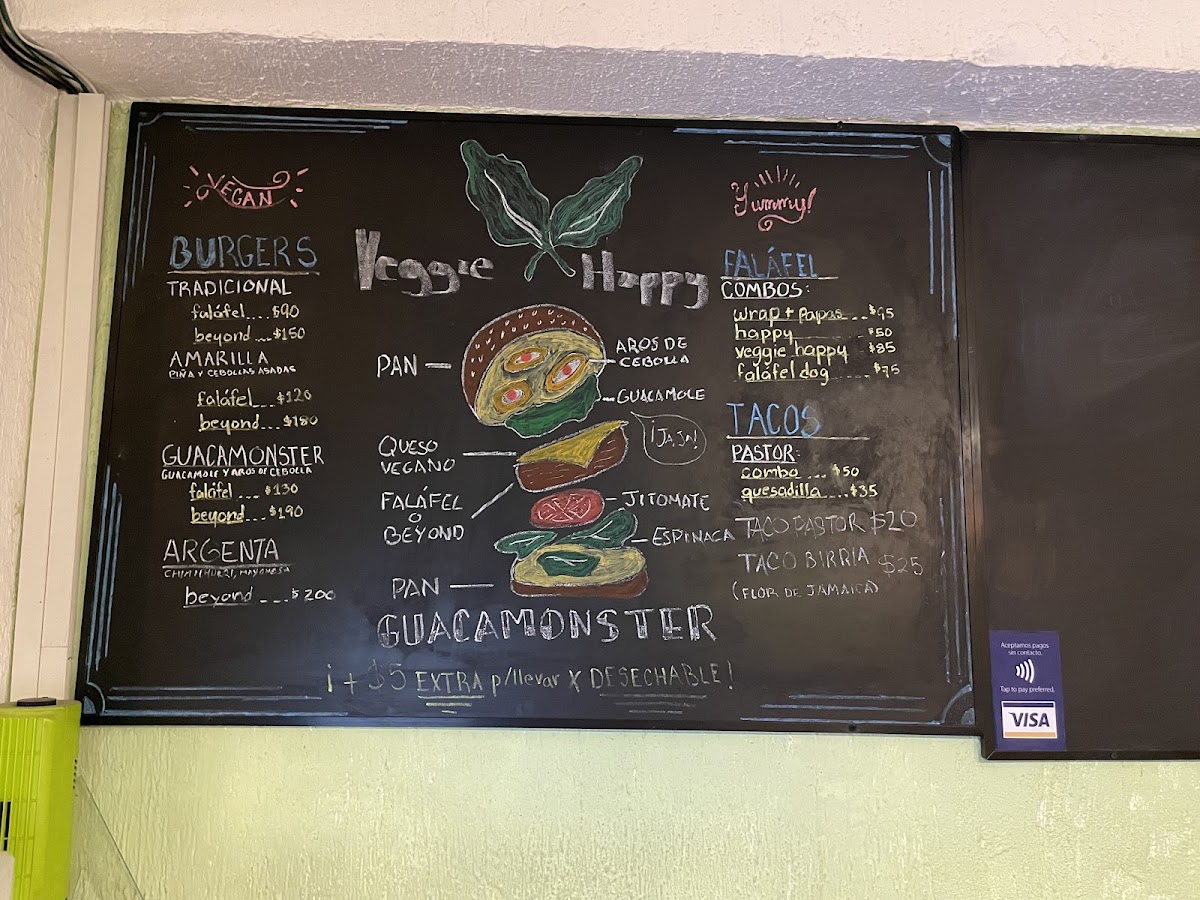 VEGAN
BURGERS
TRADICIONAL
faláfel....$90
beyond...$150
AMARILLA
PIÑA Y CEBOLLAS ASADAS
faláfel...$120
beyond...$180
GUACAMONSTER
GUACAMOLE Y AROS DE CEBOLLA
faláfel...$130
beyond...$190
ARGENTA
CHIMICHURRI, MAYONESA
beyond...$200
Veggie Happy
PAN
AROS DE
CEBOLLA
GUACAMOLE
¡JAJA!
QUESO
VEGANO
FALÁFEL
O
BEYOND
JITOMATE
ESPINACA
PAN
GUACAMONSTER
¡+$5 EXTRA p/llevar X DESECHABLE!
Yummy!
FALÁFEL
COMBOS:
wrap + papas...$95
happy......$50
veggie happy $85
faláfel dog......$75
TACOS
PASTOR:
combo....$50
quesadilla....$35
TACO PASTOR $20
TACO BIRRIA $25
(FLOR DE JAMAICA)
Aceptamos pagos
sin contacto.
Tap to pay preferred.
VISA